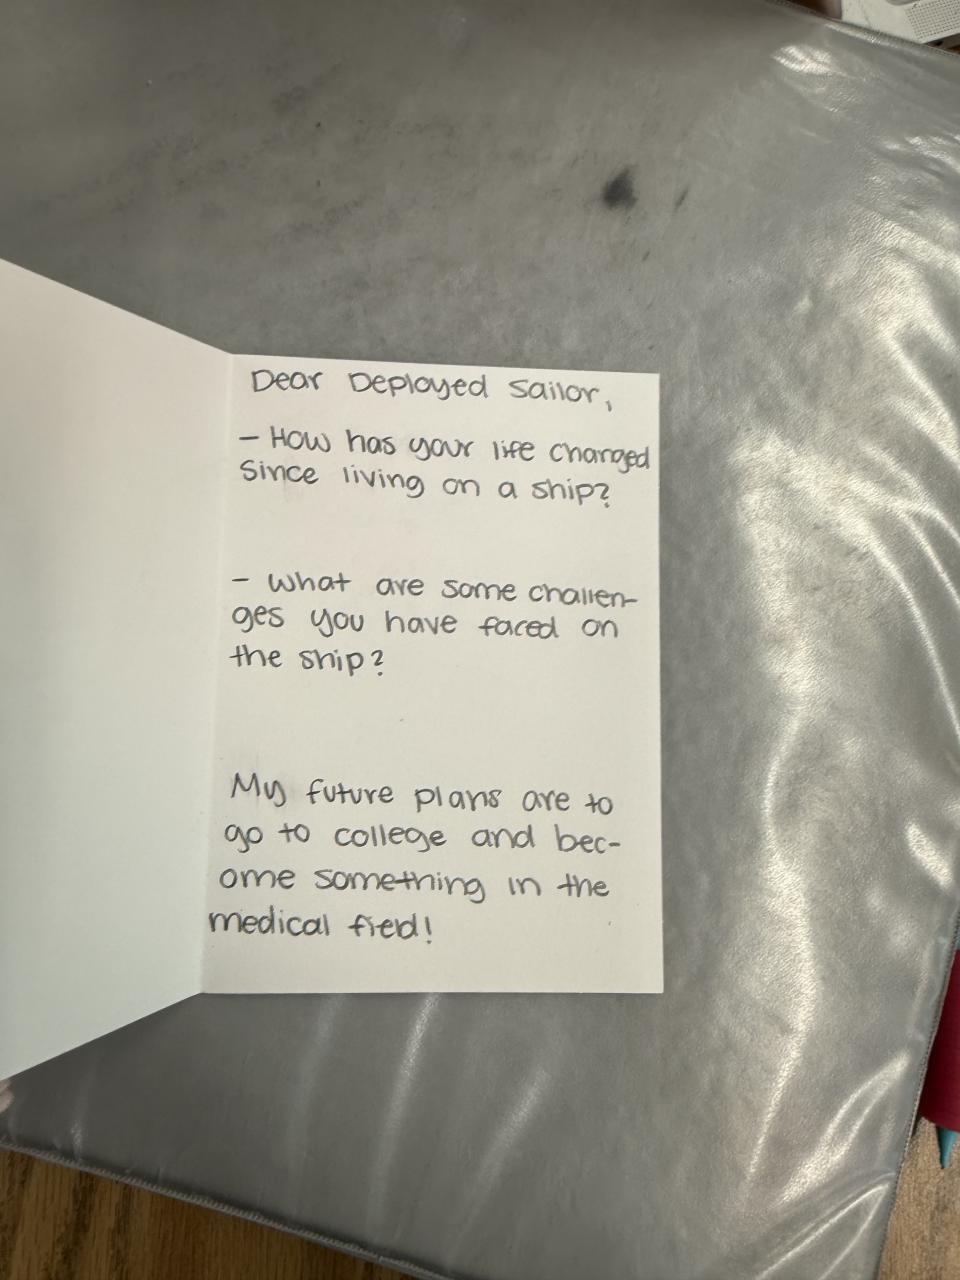 Dear Deployed Sailor,
- How has your life changed
since living on a ship?
- what are some challen-
ges you have faced on
the ship?
My future plans are to
go to college and bec-
ome something in the
medical field!